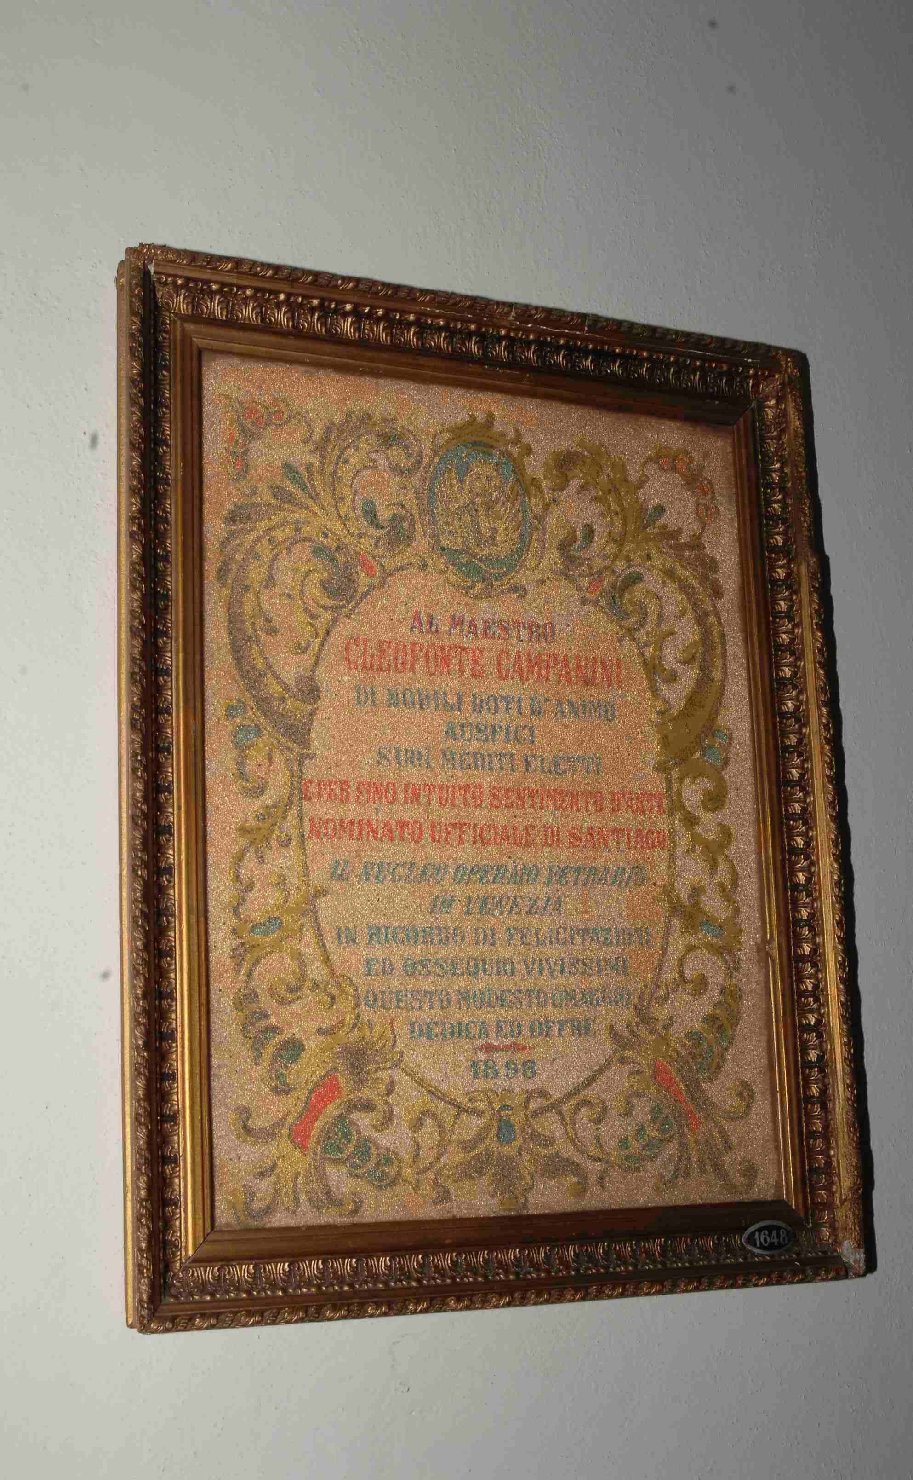 AL MAESTRO
CLEOFONTE CAMPANINI
DI NOBILI DOTI D'ANIMO
AUSPICI
SUOI MERITI ELETTI
E PER FINO INTUITO SENTIMENTO D'ARTE
NOMINATO UFFICIALE DI SANTIAGO
IL VECCHIO OPERAIO VETRARIO
DI VENEZIA
IN RICORDO DI FELICITAZIONI
ED OSSEQUIO VIVISSIMI
QUESTO MODESTO OMAGGIO
DEDICA ED OFFRE
1898
1648